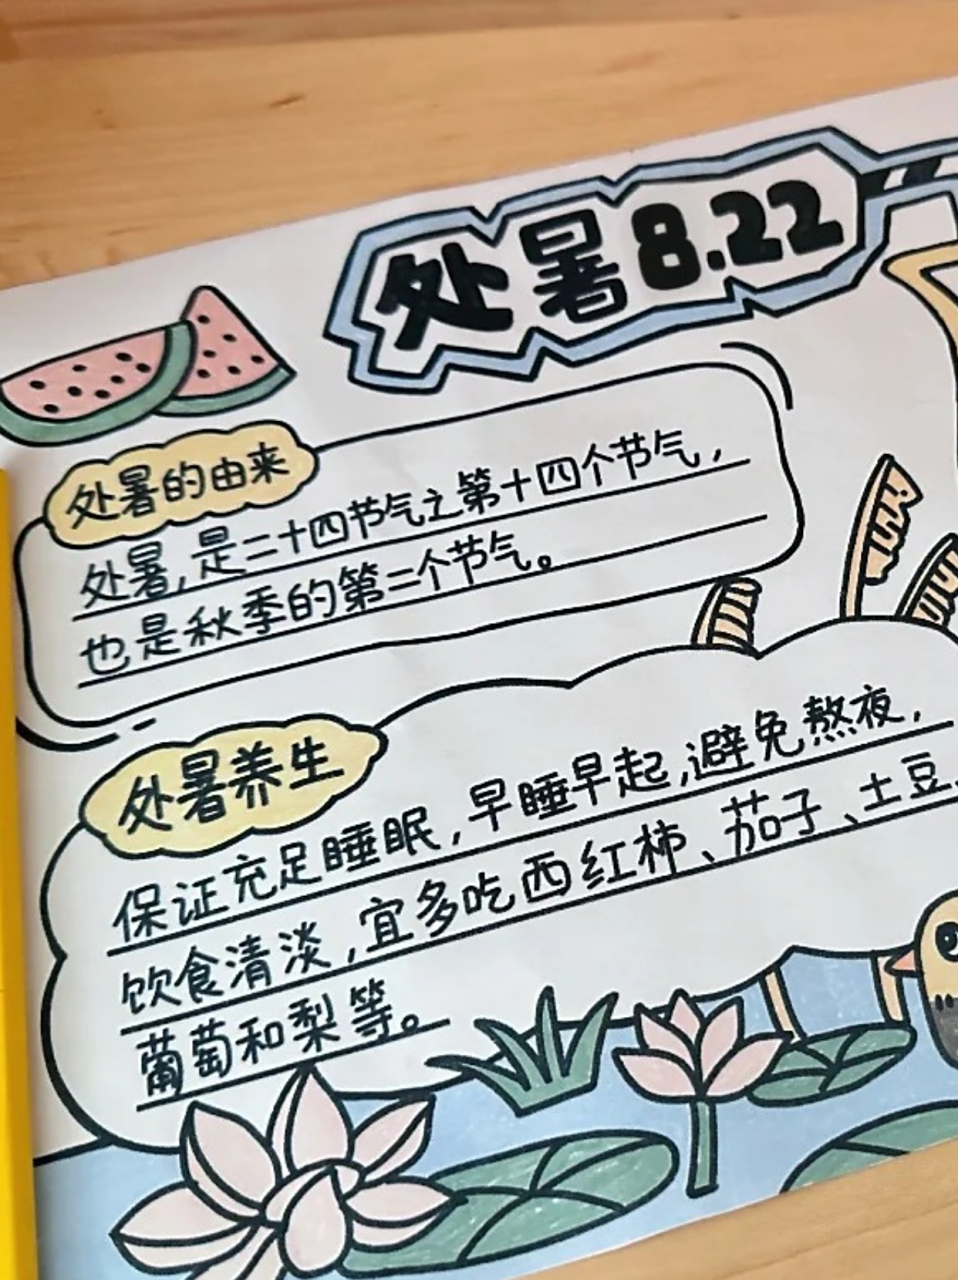 处暑8.22
处暑的由来
处暑,是二十四节气之第十四个节气,
也是秋季的第二个节气。
处暑养生
保证充足睡眠,早睡早起,避免熬夜,
饮食清淡,宜多吃西红柿、茄子、土豆、
葡萄和梨等。